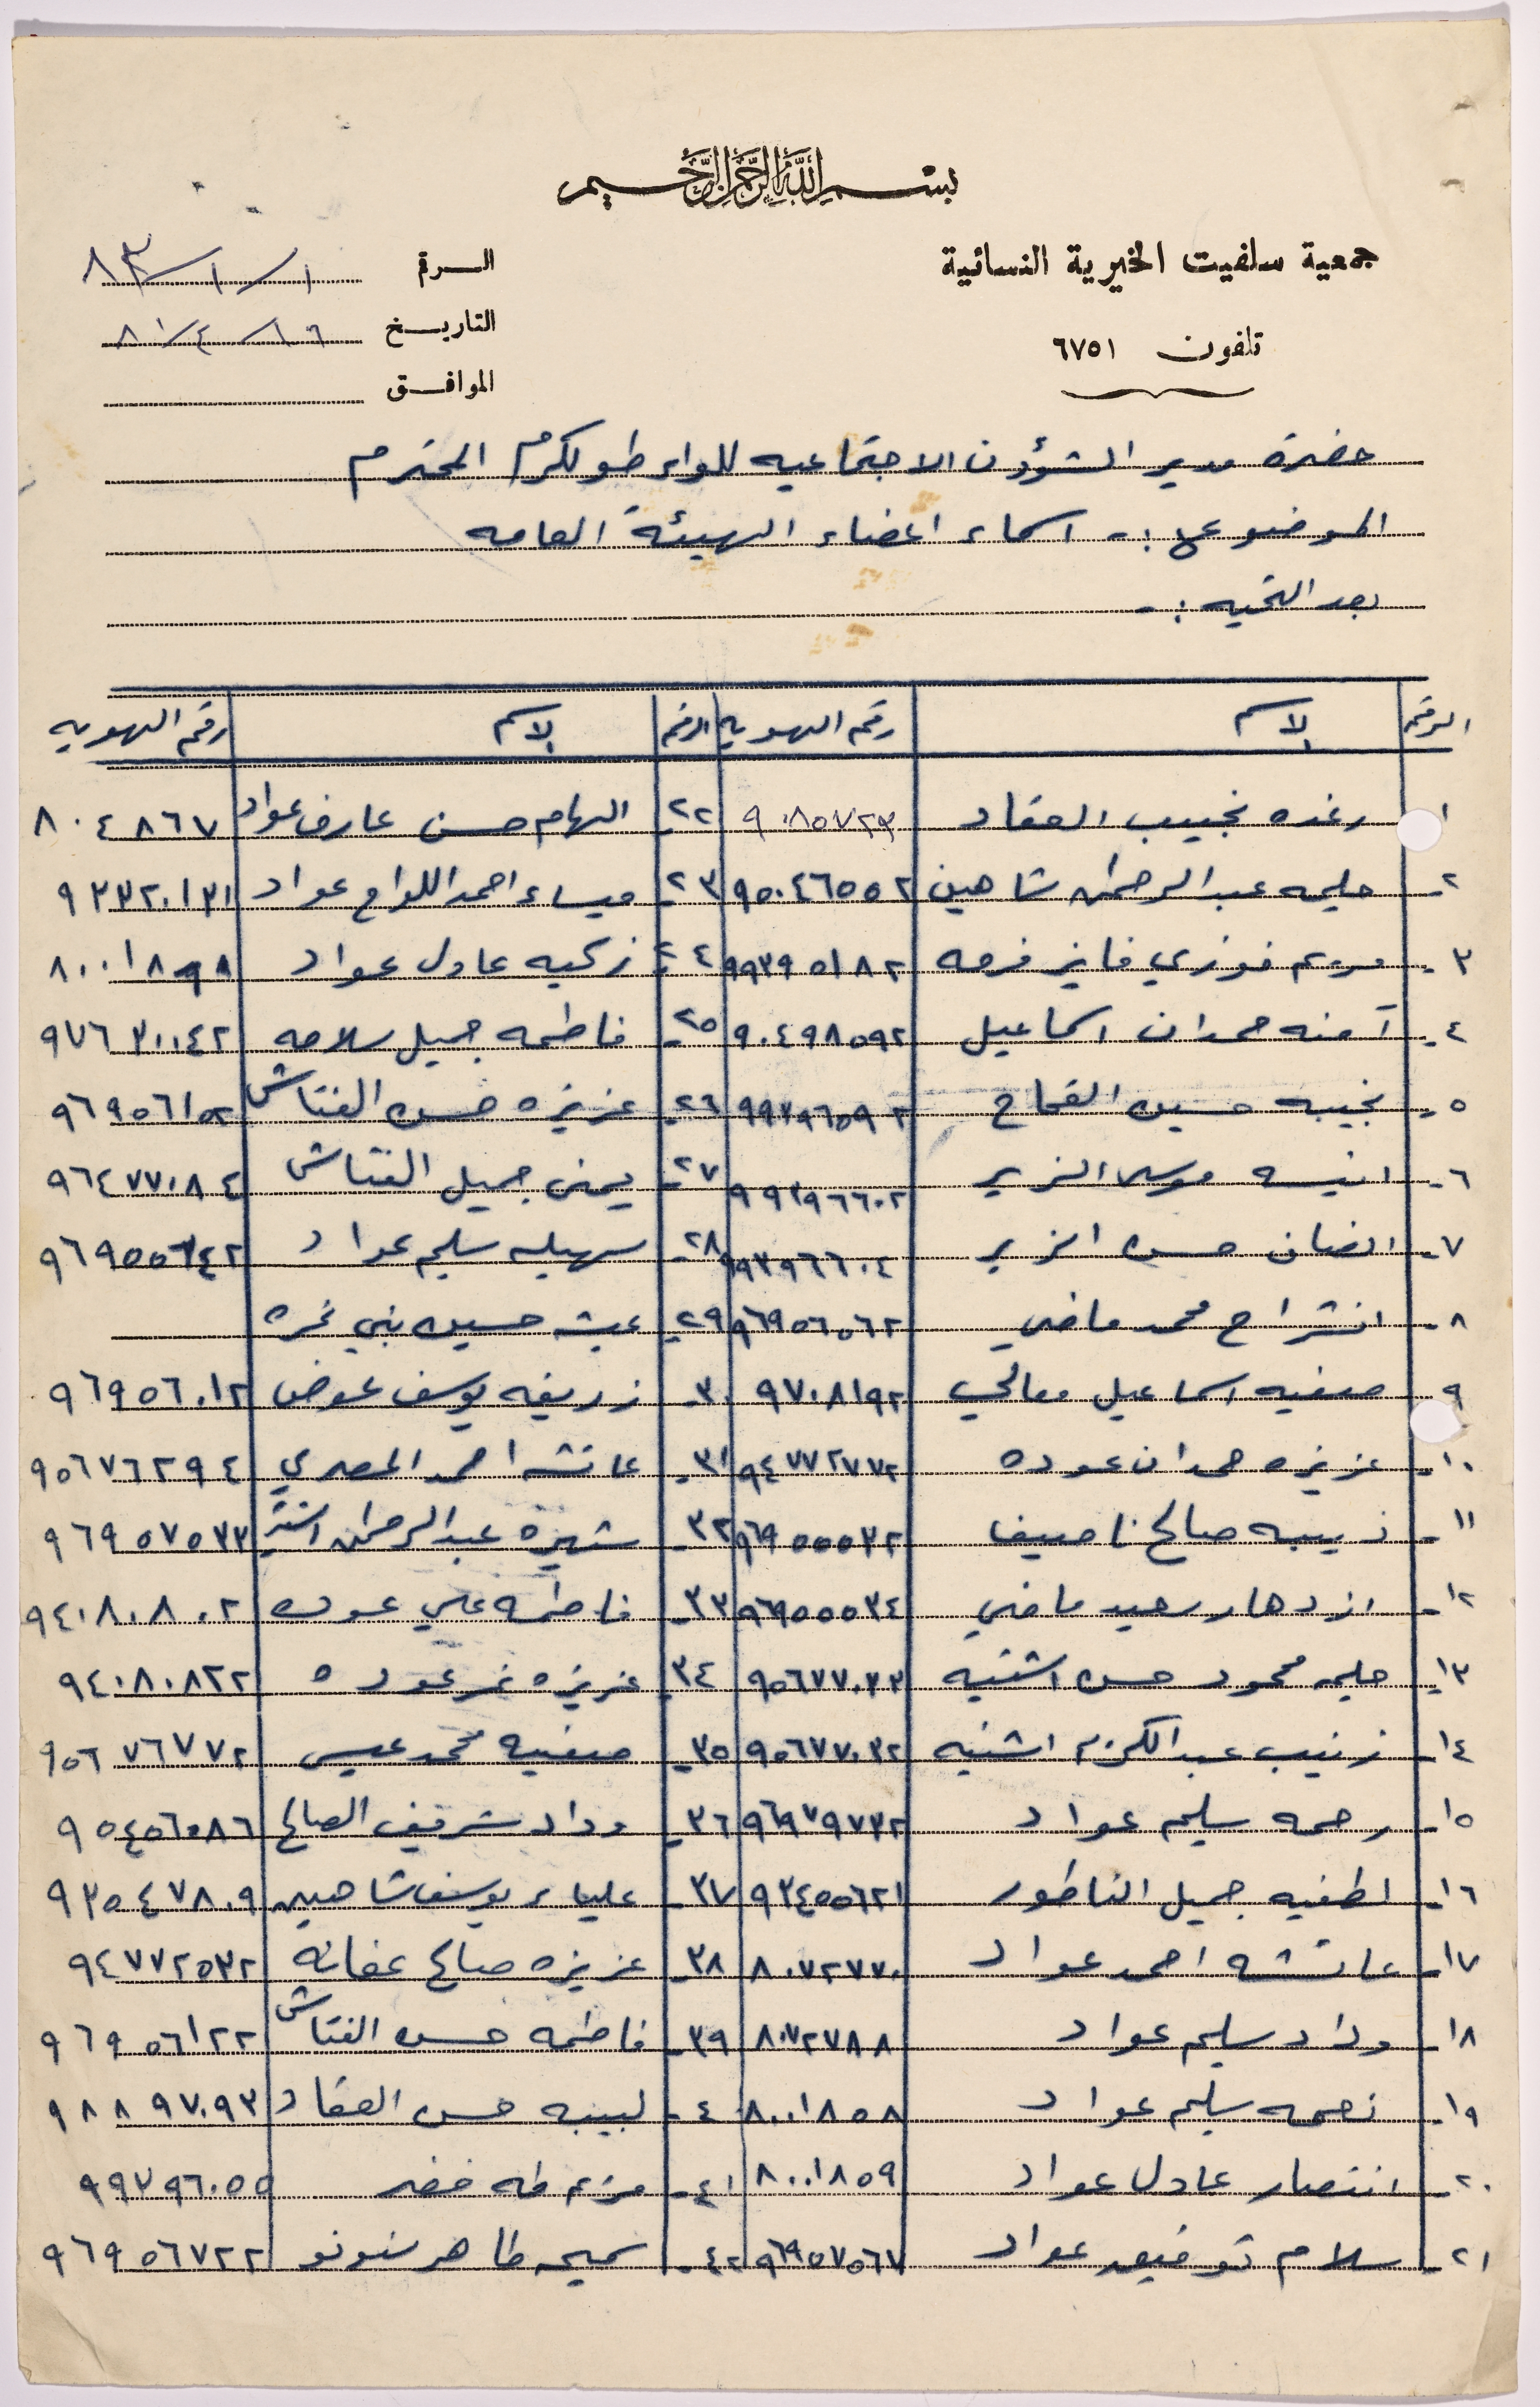 بسم الله الرحمن الرحيم
جمعية سلفيت الخيرية النسائية
تلفون ٦٧٥١
الرقم ١/١/٨٣
التاريخ ١٦/٤/٨١
الموافق
حضرة مدير الشؤون الاجتماعيه للواء طولكرم المحترم
الموضوع :- اسماء اعضاء الهيئة العامه
بعد التحيه :-
الرقم الاسم رقم الهويه الرقم الاسم رقم الهويه
١ رغده نجيب العقاد ٩٠٨٥٧٢٣ ٢٢ الهام حسن عارف عواد ٨٠٤٨٦٧
٢- حليمه عبد الرحمن شاهين ٩٥٠٤٦٥٥٢ ٢٣ ميساء احمد اللواح عواد ٩٣٣٢٠١٣١
٣- مريم فوزي فايز فرحه ٩٩٣٩٥١٨٢ ٢٤ زكيه عادل عواد ٨٠٠١٨٩٨
٤- آمنه حمدان اسماعيل ٩٠٤٩٨٥٩٢ ٢٥ فاطمه جميل سلامه ٩٧٦٣٠٠٤٢
٥- نجيبه حسين القماح ٩٩٣٩٦٥٩٢ ٢٦- عزيزه حسن الفتاش ٩٦٩٥٦١٥٢
٦- انيسه موسى الزير ٩٩٣٩٦٦٠٢ ٢٧- يمنى جميل الفتاش ٩٦٤٧٧٠٨٤
٧- انصاف حسن الزير ٩٩٣٩٦٦٠٤ ٢٨- سهيله سليم عواد ٩٦٩٥٥٦٤٢
٨- انشراح محمد ماضي ٩٦٩٥٦٥٦٢ ٢٩- عيشه حسين بني نمره
٩ صفيه اسماعيل معالي ٩٧٠٨١٩٢ ٣٠- زريفه يوسف عوض ٩٦٩٥٦٠١٢
١٠- عزيزه حمدان عوده ٩٤٧٧٢٧٧٢ ٣١- عائشه احمد المصري ٩٥٦٧٦٢٩٤
١١- ذيبه صالح ناصيف ٩٦٩٥٥٥٣٢ ٣٢- شهيره عبد الرحمن اشتيه ٩٦٩٥٧٥٣٣
١٢- ازدهار سعيد ماضي ٩٦٩٥٥٥٣٤ ٣٣- فاطمه علي عوده ٩٤٠٨٠٨٠٢
١٣- حليمه محمود حسن اشتيه ٩٥٦٧٧٠٣٣ ٣٤- عزيزه نمر عوده ٩٤٠٨٠٨٢٢
١٤- زينب عبد الكريم اشتيه ٩٥٦٧٧٠٣٢ ٣٥- صفيه محمد عيسى ٩٥٦٧٦٧٧٢
١٥- رحمه سليم عواد ٩٦٩٧٩٧٣٢ ٣٦- وداد شريف الصالح ٩٥٤٥٦٠٨٦
١٦- لطفيه جميل الناطور ٩٣٤٥٥٦٢١ ٣٧- علياء يوسف شاهين ٩٣٥٤٧٨٠٩
١٧- عائشه احمد عواد ٨٠٧٢٧٧٠ ٣٨- عزيزه صالح عفانه ٩٤٧٧٢٥٣٢
١٨- وداد سليم عواد ٨٠٧٢٧٨٨ ٣٩- فاطمه حسن الفتاش ٩٦٩٥٦١٢٢
١٩- نعمه سليم عواد ٨٠٠١٨٥٨ ٤٠- لبيبه حسن العقاد ٩٨٨٩٧٠٩٣
٢٠- انتصار عادل عواد ٨٠٠١٨٥٩ ٤١- مريم طه خضر ٩٩٧٩٦٠٥٥
٢١- سلام توفيق عواد ٩٦٩٥٧٥٦٧ ٤٢- سميحه طاهر سنونو ٩٦٩٥٦٧٢٢